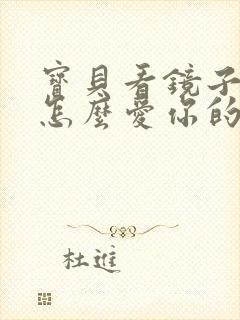 寶貝看鏡子
怎麼愛你的
杜進